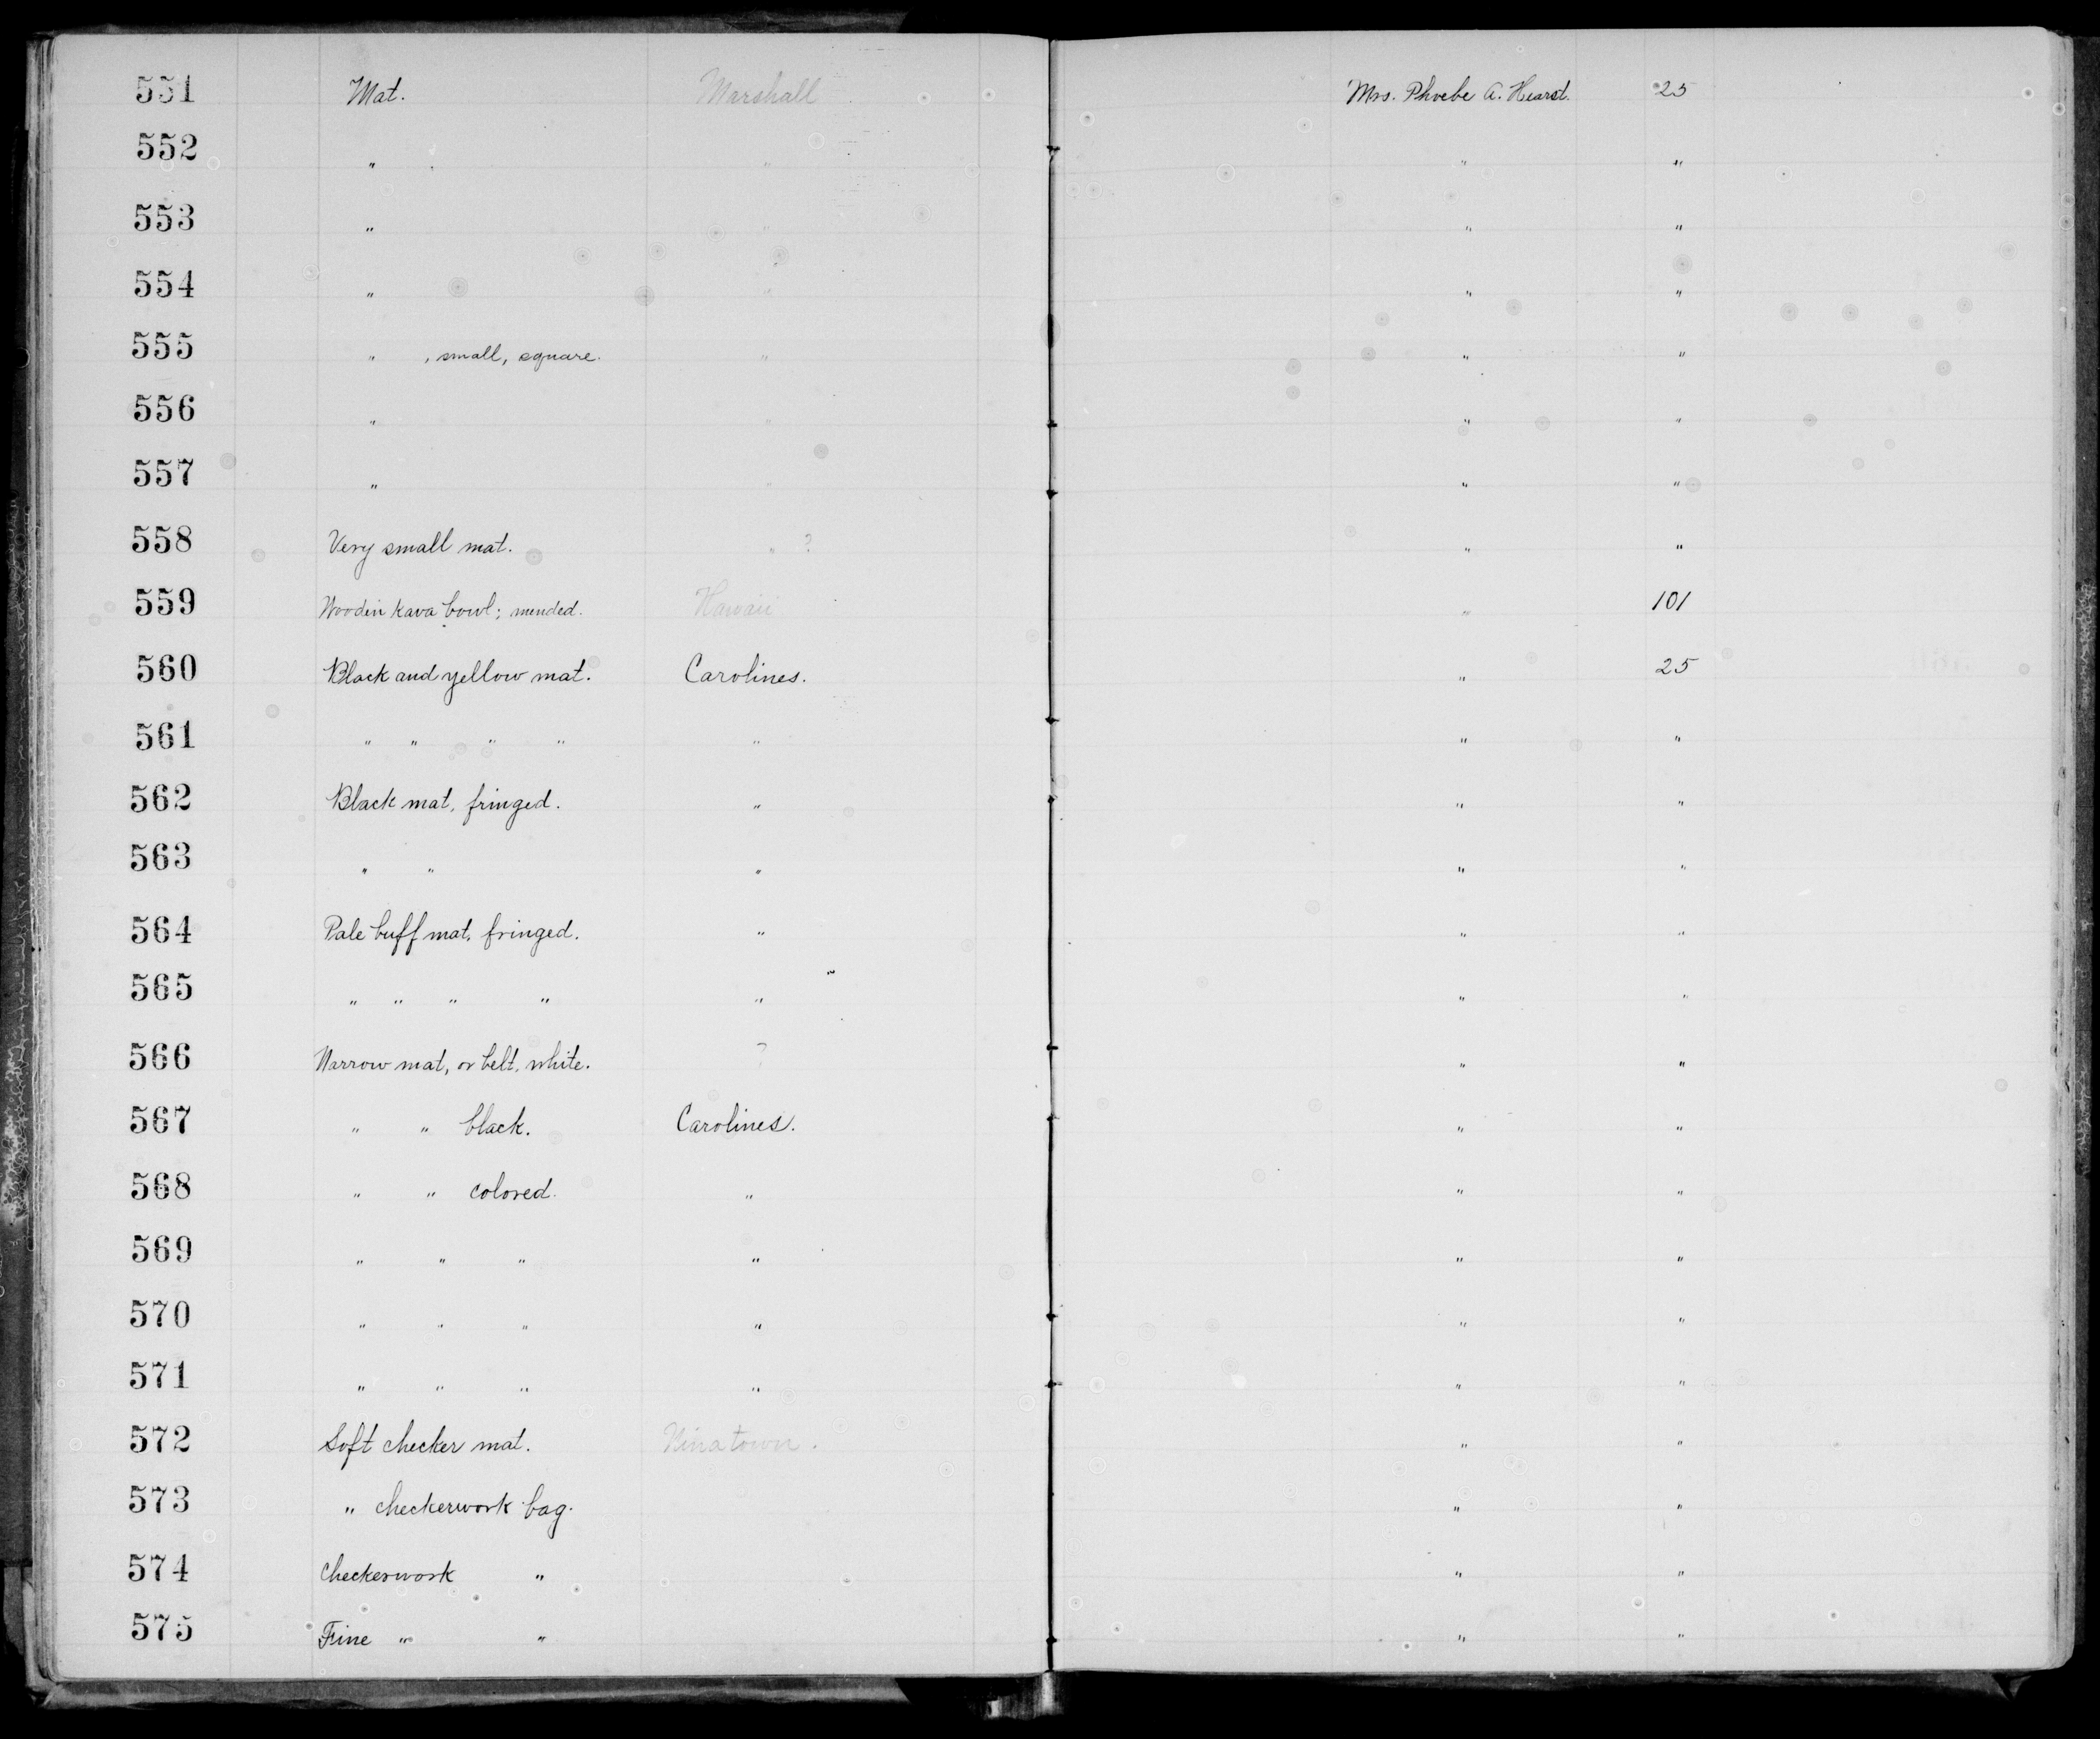 551 Mat. Marshall Mrs. Phoebe A. Hearst. 25
552 " " " "
553 " " " "
554 " " " "
555 " , small, square. " " "
556 " " " "
557 " " " "
558 Very small mat. " ? " "
559 Wooden Kava bowl; mended. Hawaii " 101
560 Black and yellow mat. Carolines. " 25
561 " " " " " " "
562 Black mat, fringed. " " "
563 " " " " "
564 Pale buff mat, fringed. " " "
565 " " " " " " "
566 Narrow mat, or belt, white. ? " "
567 " " black. Carolines. " "
568 " " colored. " " "
569 " " " " " "
570 " " " " " "
571 " " " " " "
572 Soft checker mat. " "
573 " checkerwork bag. " "
574 Checkerwork " " "
575 Fine " " " "